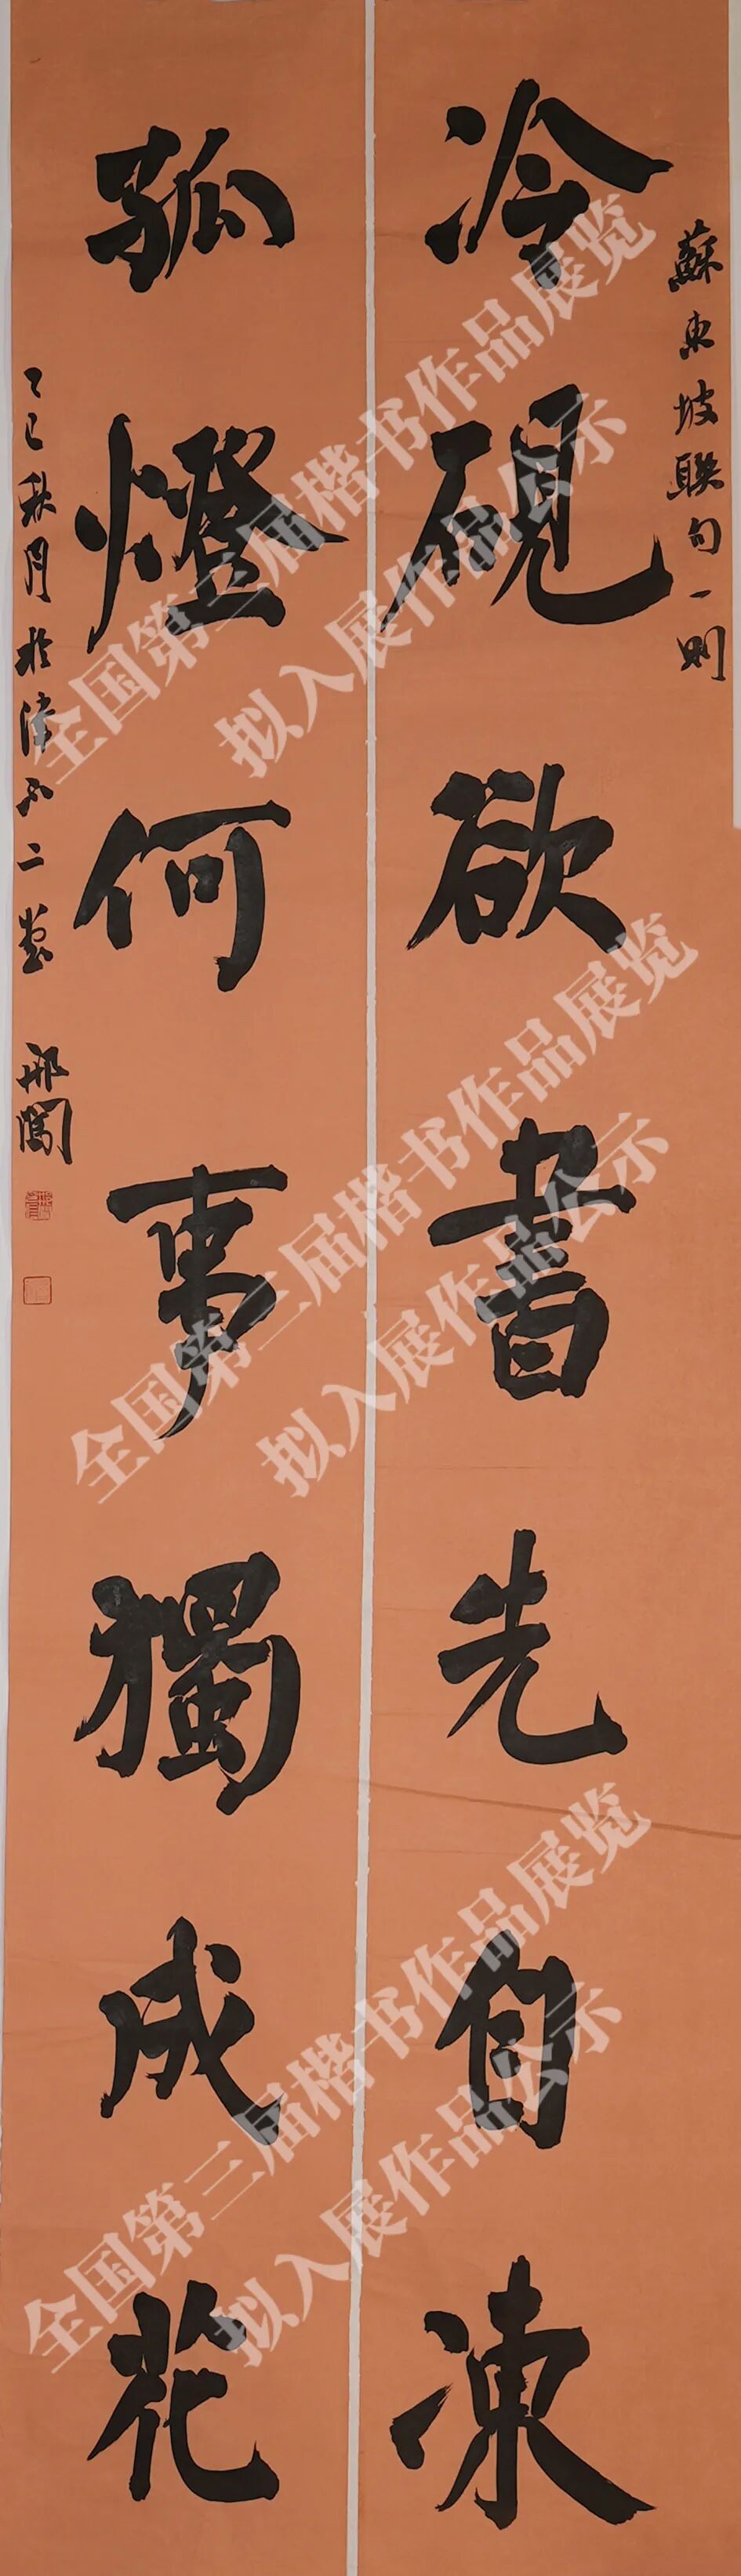 蘇東坡聯句一則
冷硯欲書先自凍
孤燈何事獨成花
乙巳秋月於津不二堂 邢闖
全国第三届楷书作品展览
拟入展作品公示
全国第三届楷书作品展览
拟入展作品公示
全国第三届楷书作品展览
拟入展作品公示